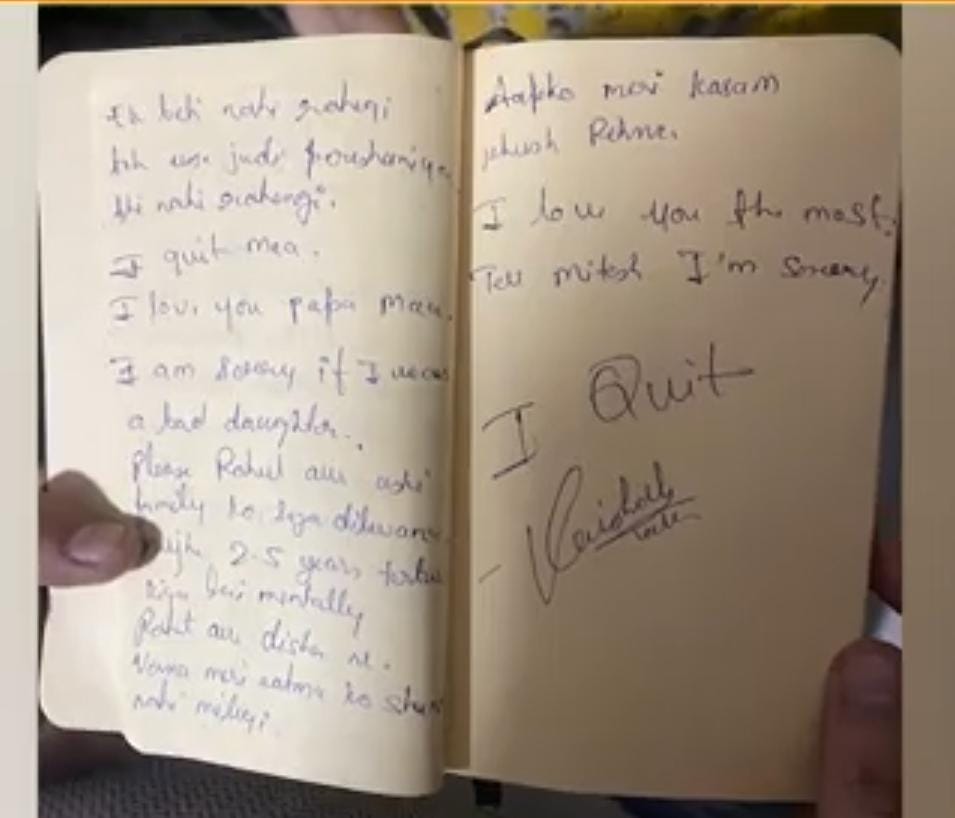 Ek beti nahi rahegi
toh usse judi pareshaniya
bhi nahi rahengi.
I quit maa.
I love you papa maa.
I am sorry if I was
a bad daughter..
Please Rahul aur uski
family ko saja dilwana
2.5 years
kiya hai mentally
aur disha ne.
Varna meri aatma ko
nahi milegi.
Aapko meri kasam
khush Rehna.
I love you the most.
Tell Mitesh I'm sorry.
I Quit
- Vaishali